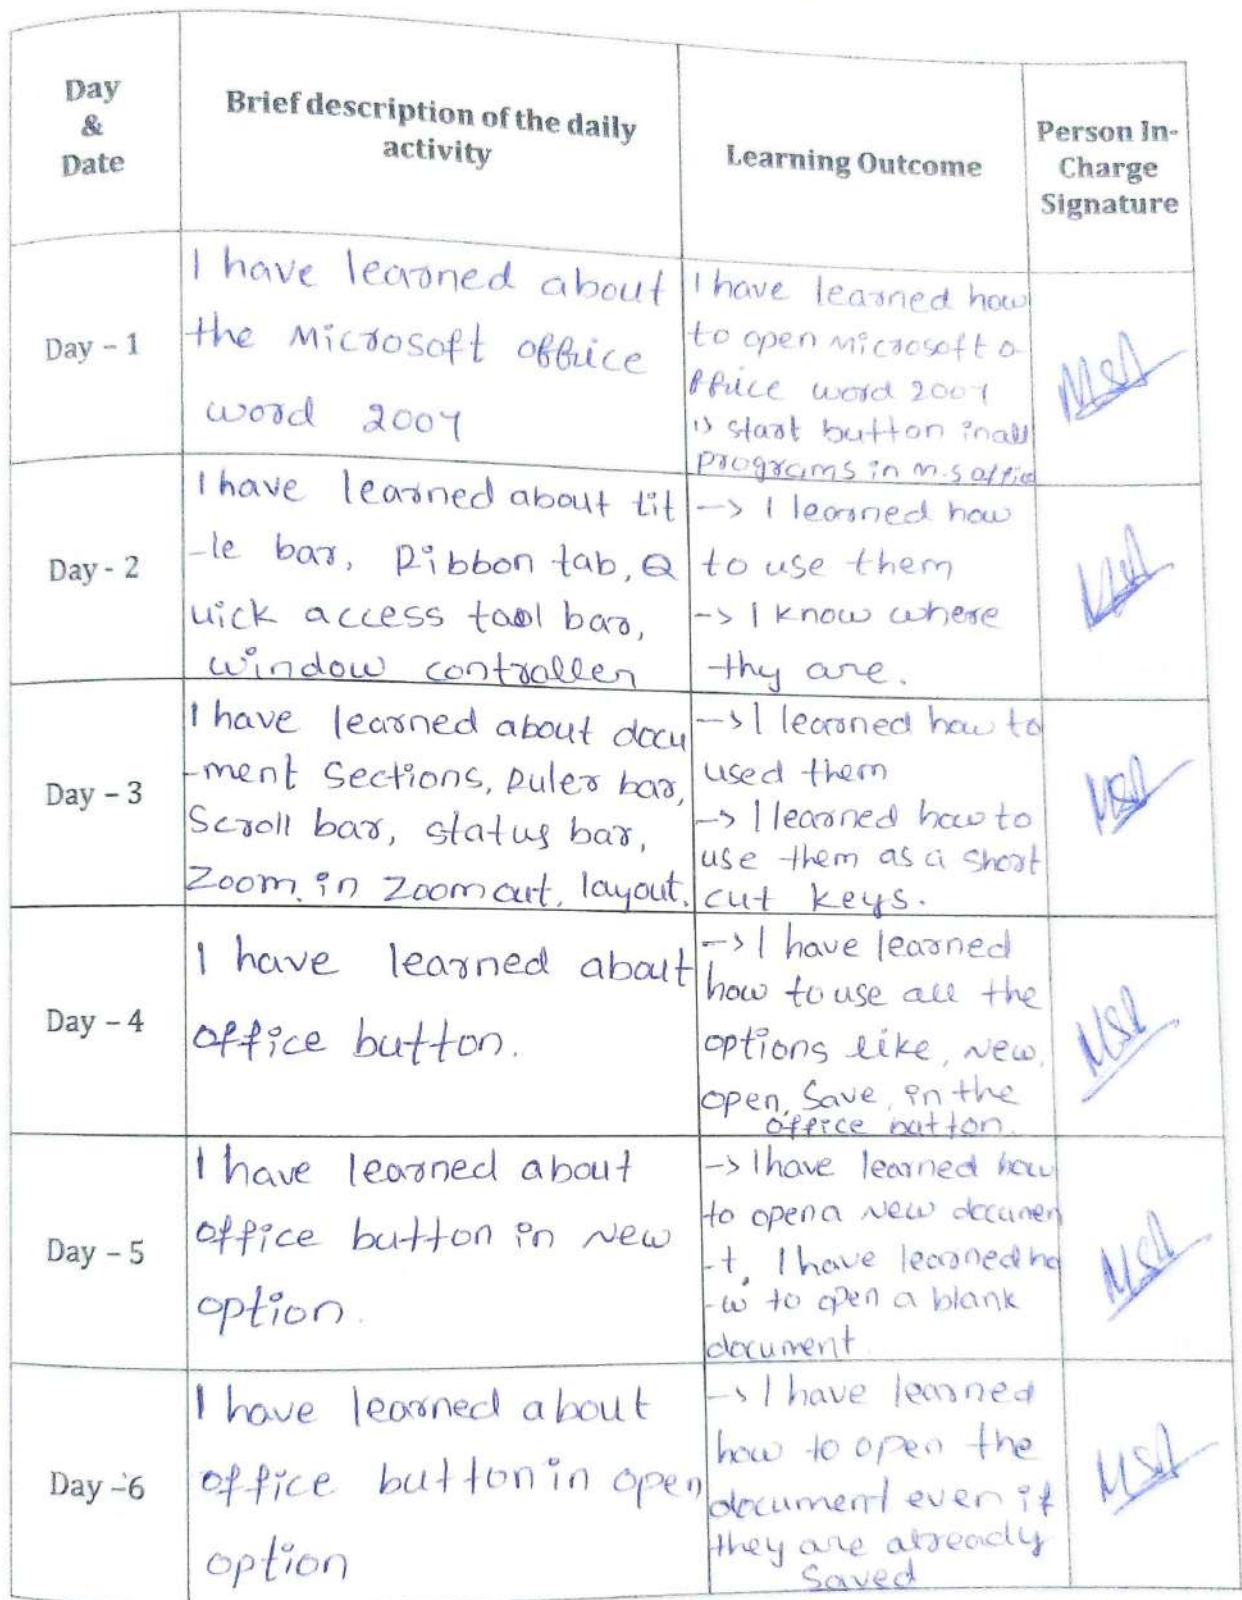 Day
&
Date
Brief description of the daily
activity
Learning Outcome
Person In-
Charge
Signature
Day - 1
I have learned about
the Microsoft office
word 2007
I have learned how
to open Microsoft o
ffice word 2007
1) start button in all
programs in m.s offic
Day - 2
I have learned about tit
-le bar, Ribbon tab, Q
uick access tool bar,
window controller
-> I learned how
to use them
-> I know where
thy are.
Day - 3
I have learned about docu
-ment Sections, Ruler bar,
Scroll bar, status bar,
Zoom in Zoom out, layout.
-> I learned how to
used them
-> I learned how to
use them as a short
cut keys.
Day - 4
I have learned about
office button.
-> I have learned
how to use all the
options like, New,
open, Save, in the
office button.
Day - 5
I have learned about
office button in New
option.
-> I have learned how
to open a New documen
-t, I have learned ho
-w to open a blank
document.
Day - 6
I have learned about
office button in open
option
-> I have learned
how to open the
document even if
they are already
Saved